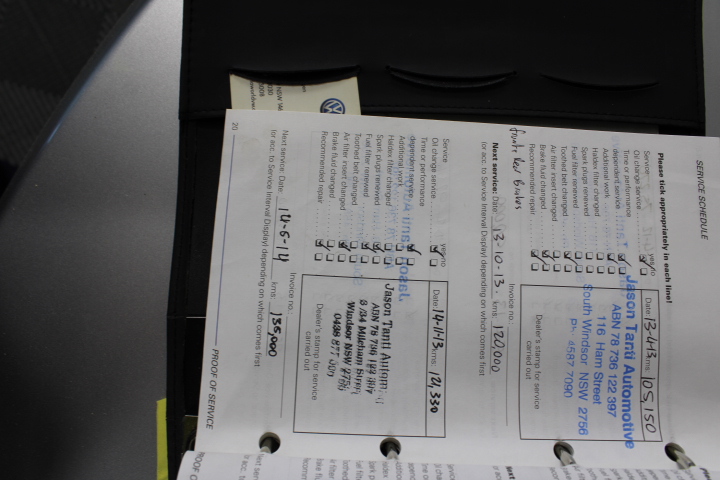 SERVICE SCHEDULE
Please tick appropriately in each line!
Service yes no
Oil change service
Time or performance
dependent service
Additional work
Haldex filter changed
Spark plugs renewed
Fuel filter renewed
Toothed belt changed
Air filter insert changed
Brake fluid changed
Recommended repair
Date 13-4-13 kms: 105,150
Jason Tanti Automotive
ABN 78 796 122 397
116 Ham Street
South Windsor NSW 2756
Ph: 4587 7090
Dealer's stamp for service
carried out
Invoice no.:
Next service: Date 13-10-13. kms: 120,000
(or acc. to Service Interval Display) depending on which comes first
Service yes no
Oil change service
Time or performance
dependent service
Additional work
Haldex filter changed
Spark plugs renewed
Fuel filter renewed
Toothed belt changed
Air filter insert changed
Brake fluid changed
Recommended repair
Date 14-11-13 kms: 121,330
Jason Tanti
ABN 78 796 122 397
Windsor NSW 2756
Dealer's stamp for service
carried out
Invoice no.:
Next service: Date 14-5-14 kms: 135,000
(or acc. to Service Interval Display) depending on which comes first
20
PROOF OF SERVICE